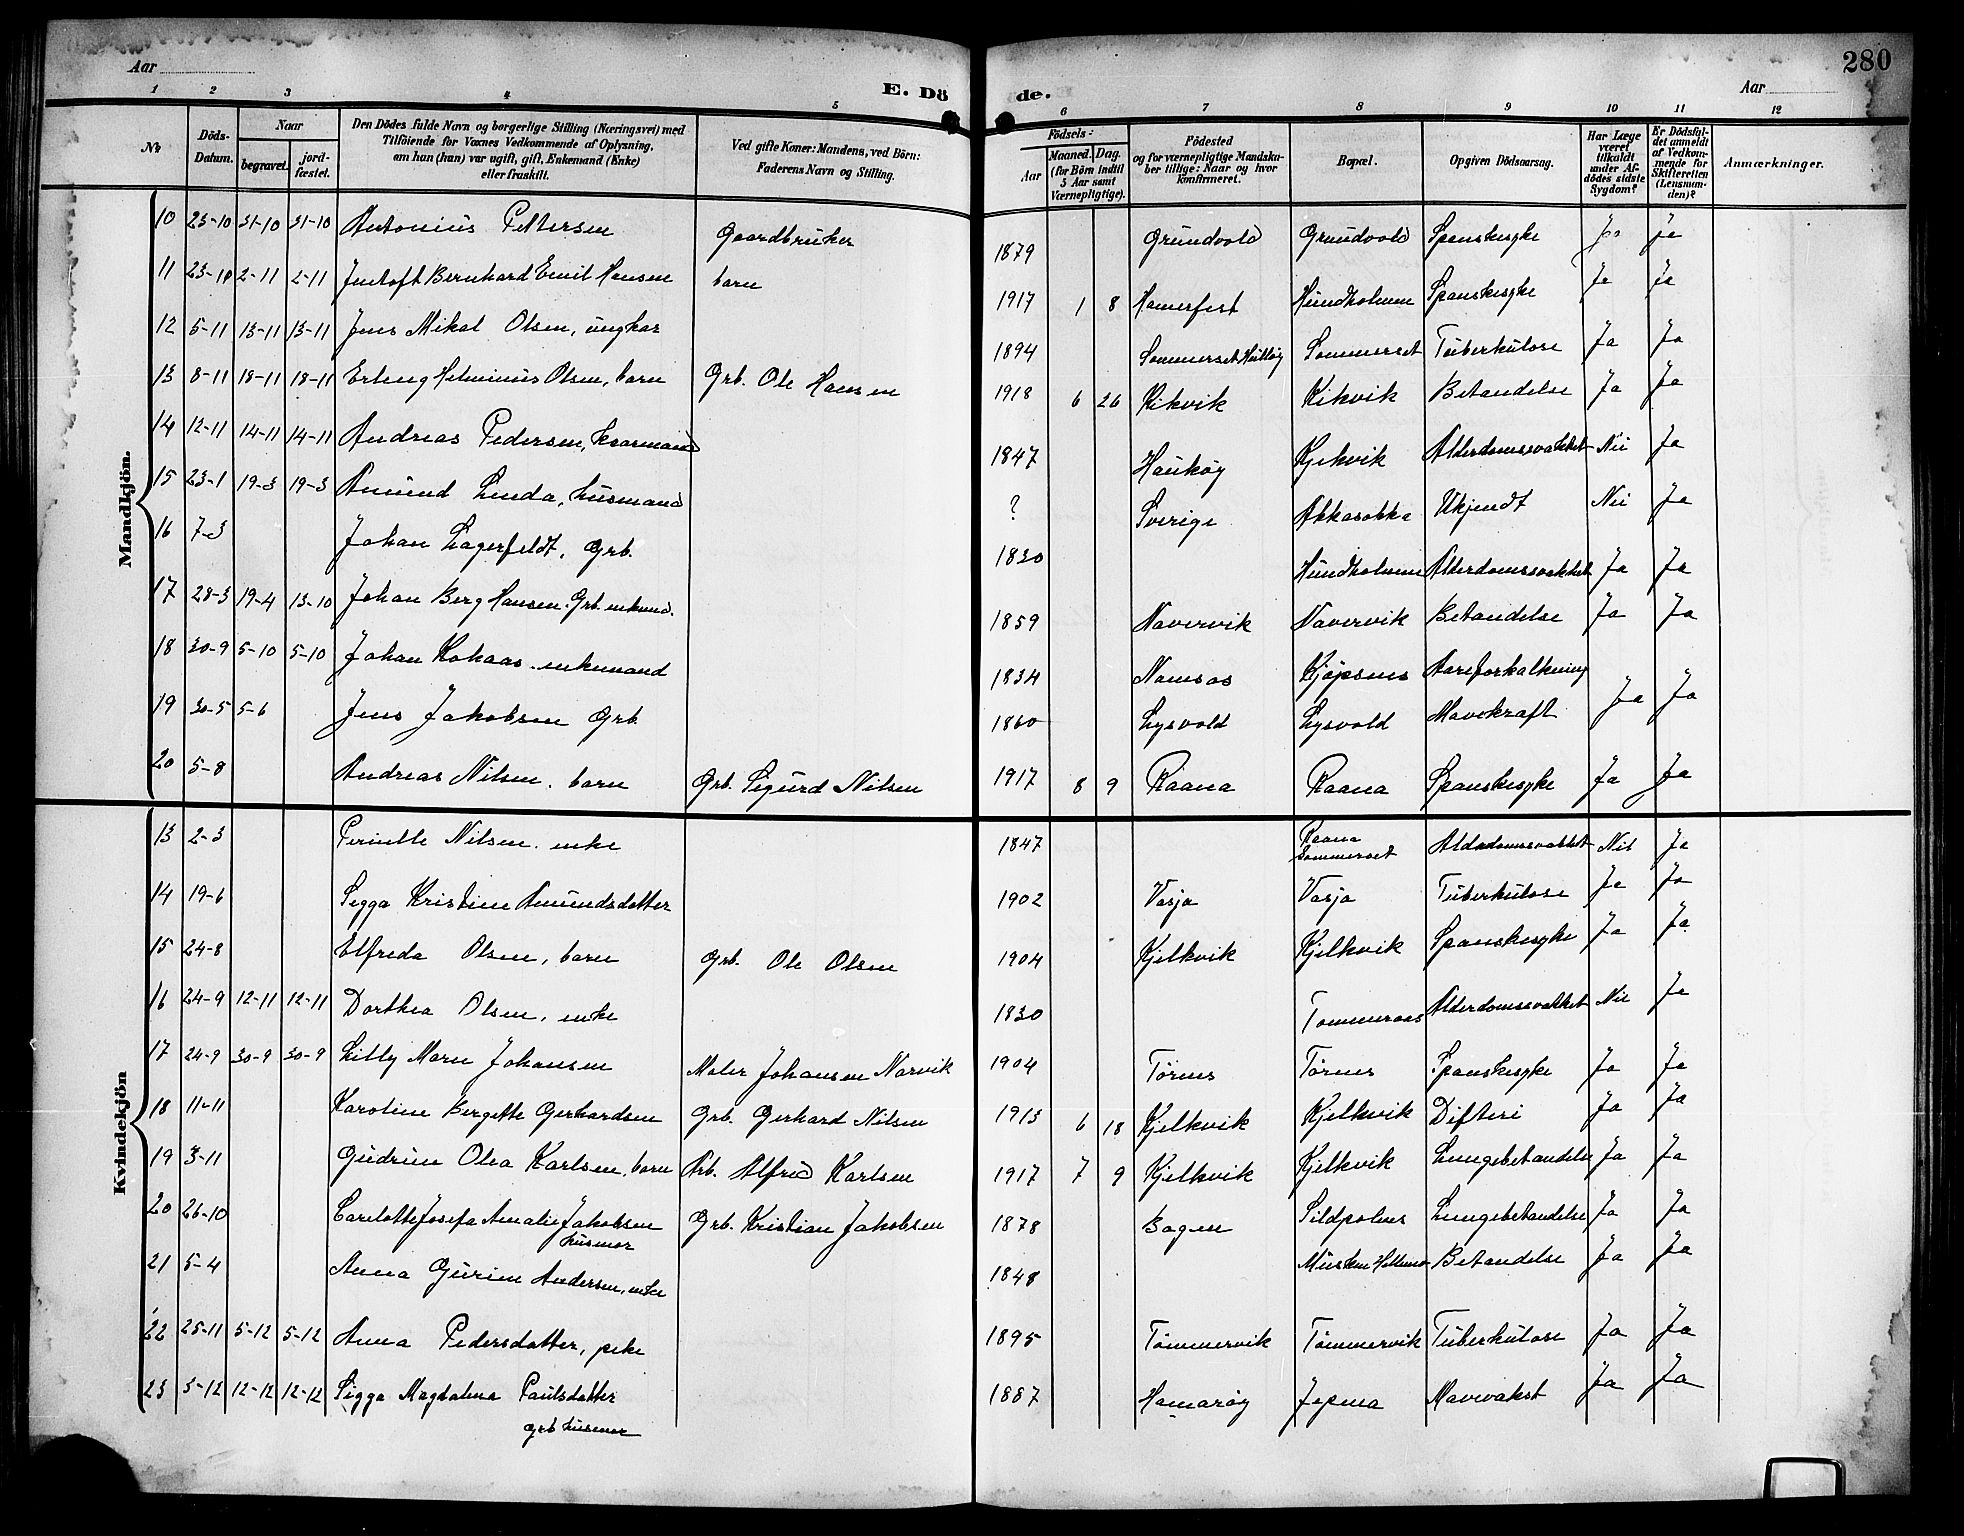 280
Aar
Aar
E. Dö de.
1 2 3 4 5 6 7 8 9 10 11 12
No
Döds-Datum.
Naar
begravet.
jord-fæstet.
Den Dödes fulde Navn og borgerlige Stilling (Næringsvei) med
Tilföiende for Voxnes Vedkommende af Oplysning,
om hun (han) var ugift, gift, Enkemand (Enke)
eller fraskilt.
Ved gifte Koner: Mandens, ved Börn:
Faderens Navn og Stilling.
Födsels-:
Aar
Maaned. Dag.
(for Börn indtil
5 Aar samt
Værnepligtige).
Födested
og for værnepligtige Mandska-
ber tillige: Naar og hvor
konfirmeret.
Bopæl.
Opgiven Dödsaarsag.
Har Læge
været
tilkaldt
under Af-
dödes sidste
Sygdom?
Er Dödsfal-
det anmeldt
af Vedkom-
mende for
Skifteretten
(Lensman-
den)?
Anmærkninger.
Mandkjön.
10 23-10 31-10 31-10 Antonius Pettersen Gaardbruker 1879 Grundvold Grundvold Spanskesyke Ja Ja
11 23-10 2-11 2-11 Jentoft Bernhard Emil Hansen barn 1917 1 8 Hamerfest Hundholmen Spanskesyke Ja Ja
12 5-11 13-11 13-11 Jens Mikal Olsen, ungkar 1894 Sommerset Sommerset Tuberkulose Ja Ja
13 8-11 18-11 18-11 Erling Helminus Olsen, barn Grb. Ole Hansen 1918 6 26 Kikvik Kikvik Betandelse Ja Ja
14 12-11 14-11 14-11 Andreas Pedersen, kaarmand 1847 Haukøy Kjelkvik Alderdomssvakhet Nei Ja
15 23-1 19-3 19-3 Amund Linda, husmand ? Sverige Ukjendt Nei Ja
16 7-3 Johan Lagerfeldt, Grb. 1830 Hundholmen Alderdomssvakhet Ja Ja
17 28-3 19-4 13-10 Johan Berg Hansen. Grb. enkmd. 1859 Navervik Navervik Betandelse Ja Ja
18 30-9 5-10 5-10 Johan Kohaas. enkemand 1834 Namsos Kjøpsnes Aareforkalkning
19 30-5 5-6 Jens Jakobsen Grb 1860 Lysvold Lysvold Mavekræft Ja Ja
20 5-8 Andreas Nilsen. barn Grb. Sigurd Nilsen 1917 8 9 Raana Raana Spanskesyke Ja Ja
Kvindekjön
13 2-3 Pernelle Nilsen. enke 1847 Raana Sommerset Alderdomssvakhet Nei Ja
14 19-6 Sigga Kristine Amundsdatter 1902 Vasja Vasja Tuberkulose Ja Ja
15 24-8 Elfreda Olsen, barn Grb. Ole Olsen 1904 Kjelkvik Kjelkvik Spanskesyke Ja Ja
16 24-9 12-11 12-11 Dorthea Olsen, enke 1830 Tommeraas Alderdomssvakhet Nei Ja
17 24-9 30-9 30-9 Lilly Marn Johansen Maler Johansen Narvik 1904 Tørnes Tørnes Spanskesyke Ja Ja
18 11-11 Karoline Bergette Gerhardsen Grb. Gerhard Nilsen 1913 6 18 Kjelkvik Kjelkvik Difteri Ja Ja
19 3-11 Gudrun Olea Karlsen, barn Arb. Alfred Karlsen 1917 7 9 Kjelkvik Kjelkvik Lungebetandelse Ja Ja
20 26-10 Carelotte Josefa Amalie Jakobsen husmor Grb. Kristian Jakobsen 1878 Bogen Sildpolnes Lungebetandelse Ja Ja
21 5-4 Anna Gurine Andersen, enke 1848 Musken Hellemo Betandelse Ja Ja
22 25-11 5-12 5-12 Anna Pedersdatter, pike 1895 Tømmervik Tømmervik Tuberkulose Ja Ja
23 3-12 12-12 12-12 Sigga Magdalena Paulsdatter grb husmor 1887 Hamarøy Jepma Mavevakst Ja Ja